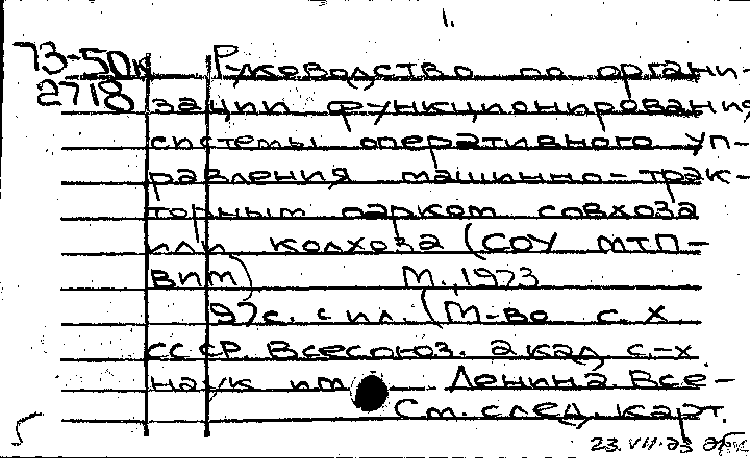 1.
73-50к Руководство по органи-
2718 зации функционирования
системы оперативного уп-
равления машинно-трак-
торным парком совхоза
или колхоза (СОУ МТП-
вим) М., 1973
97с. с ил. (М-во с. х
СССР. Всесоюз. акад с.-х
наук им Ленина Все-
См. след. карт.
23.VII.73